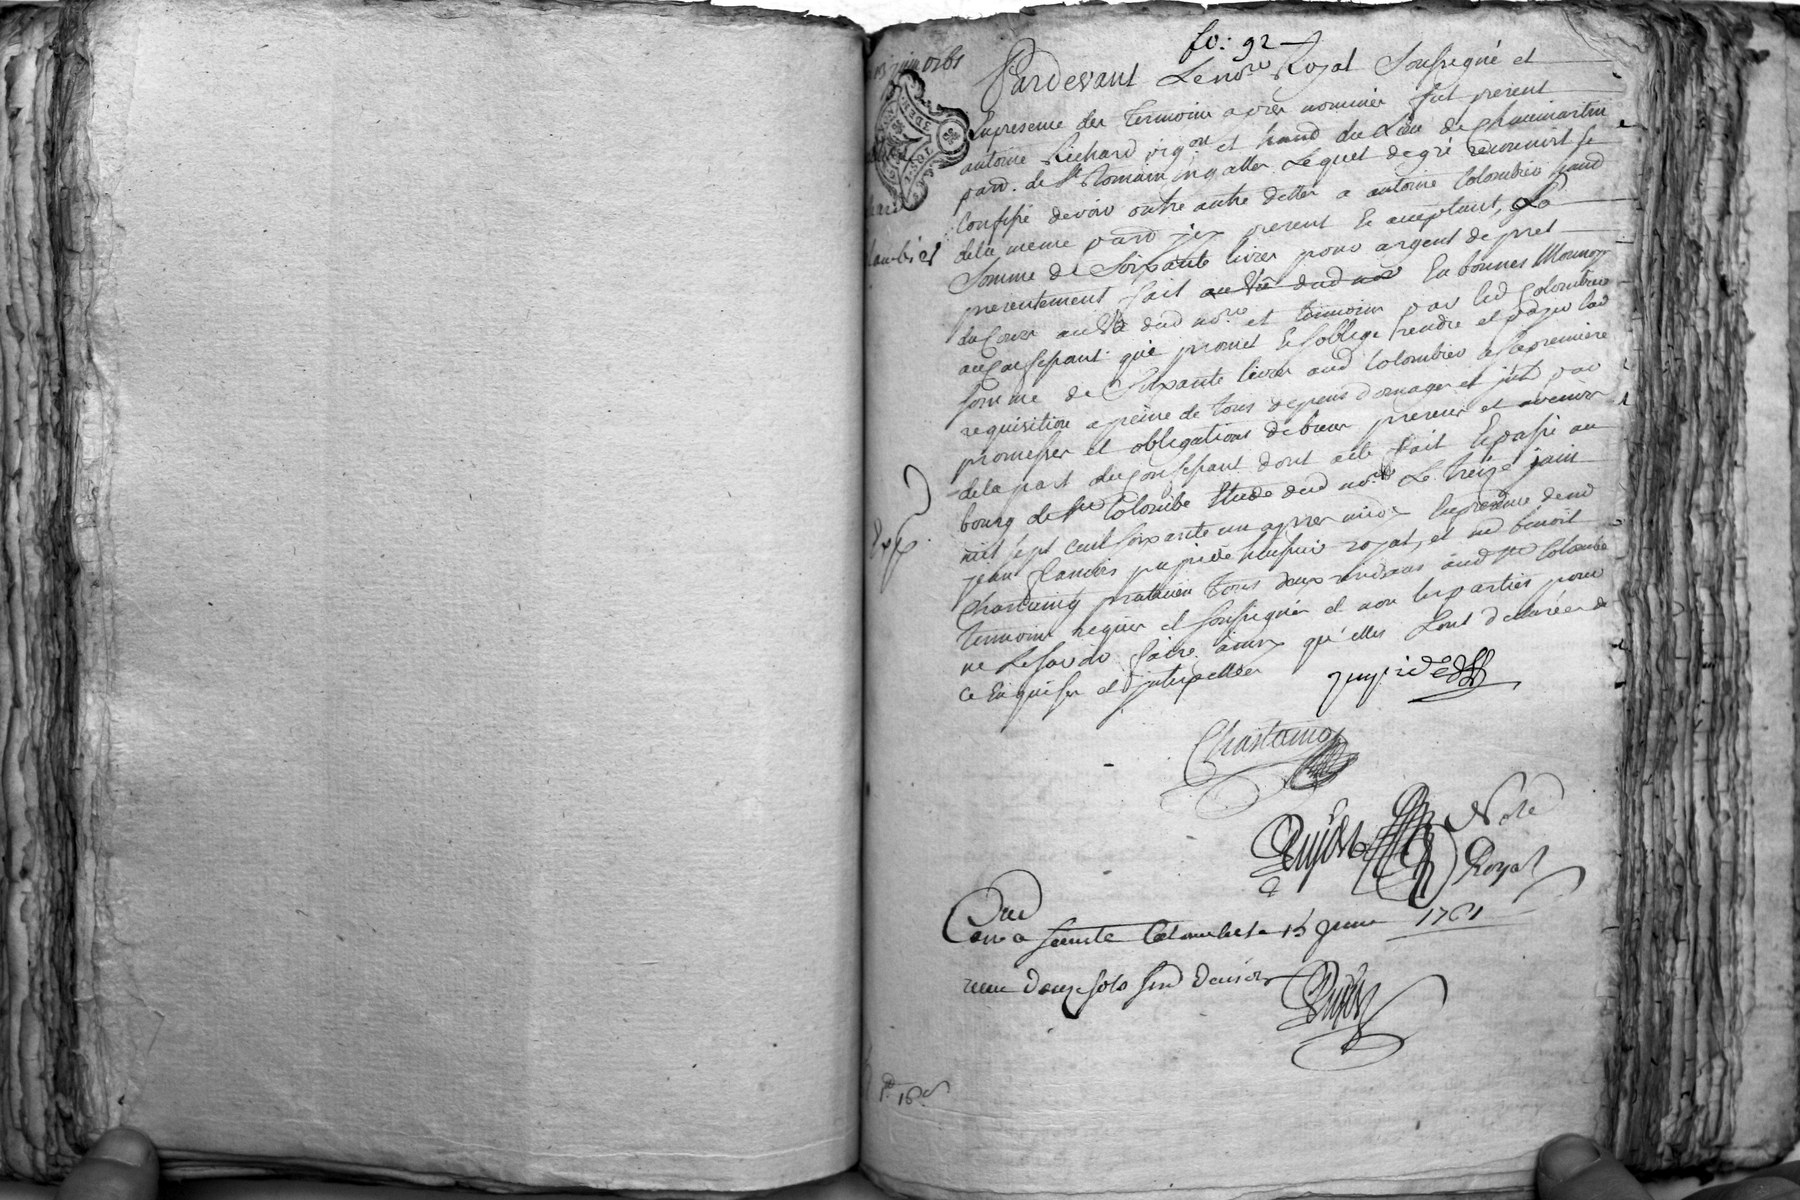 fo: 92
13 juin 1761
Pardevant Le no.re Royal Soussigné et
En presence des temoins apres nommés fut present
antoine Richard vig.on et hand du Lieu de
parr. de St Romain Lequel de gré reconnoit Et
Confesse devoir outre autre dettes a antoine Colombier hand
de la meme parr icy present Et acceptant, La
Somme de Soixante livres pour argent de pret
presentement fait au vu dud no.re En bonnes Monnoy
du Cours au vu dud no.re et temoins par led Colombier
aud Confessant qui promet Et soblige rendre et payer lad
Somme de Soixante livres aud Colombier a sa premiere
requisition a peine de tous depens domages et jnts par
promesses et obligations de biens presens et avenir
de la part du Confessant dont acte fait Et passé au
bourg de Ste Colombe Etude dud no.re Le treize juin
mil sept cent soixante un apres midi En presence de me
jean huissier royal, et me benoit
Chastaing praticien tous deux residans aud Ste Colombe
temoins requis et soussignés et non les parties pour
ne Le savoir faire ainsy qu'elles Sont declarées de
ce Enquises et jnterpellées
Chastaing
No.re
Royal
Con.e a Sainte Colombe Le 15 Juin 1761
reçu douze sols